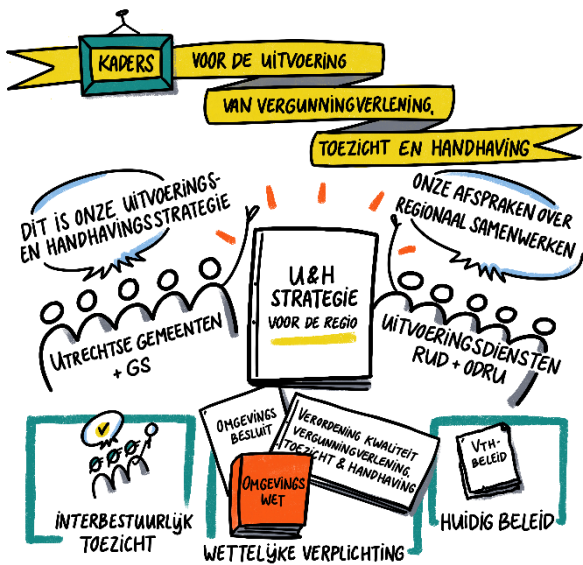 KADERS VOOR DE UITVOERING
VAN VERGUNNINGVERLENING,
TOEZICHT EN HANDHAVING
DIT IS ONZE UITVOERINGS-
EN HANDHAVINGSSTRATEGIE
ONZE AFSPRAKEN OVER
REGIONAAL SAMENWERKEN
U&H
STRATEGIE
VOOR DE REGIO
UTRECHTSE GEMEENTEN
+ GS
UITVOERINGSDIENSTEN
RUD + ODRU
OMGEVINGS
BESLUIT
VERORDENING KWALITEIT
VERGUNNINGVERLENING,
TOEZICHT & HANDHAVING
OMGEVINGS
WET
VTH-
BELEID
INTERBESTUURLIJK
TOEZICHT
WETTELIJKE VERPLICHTING
HUIDIG BELEID